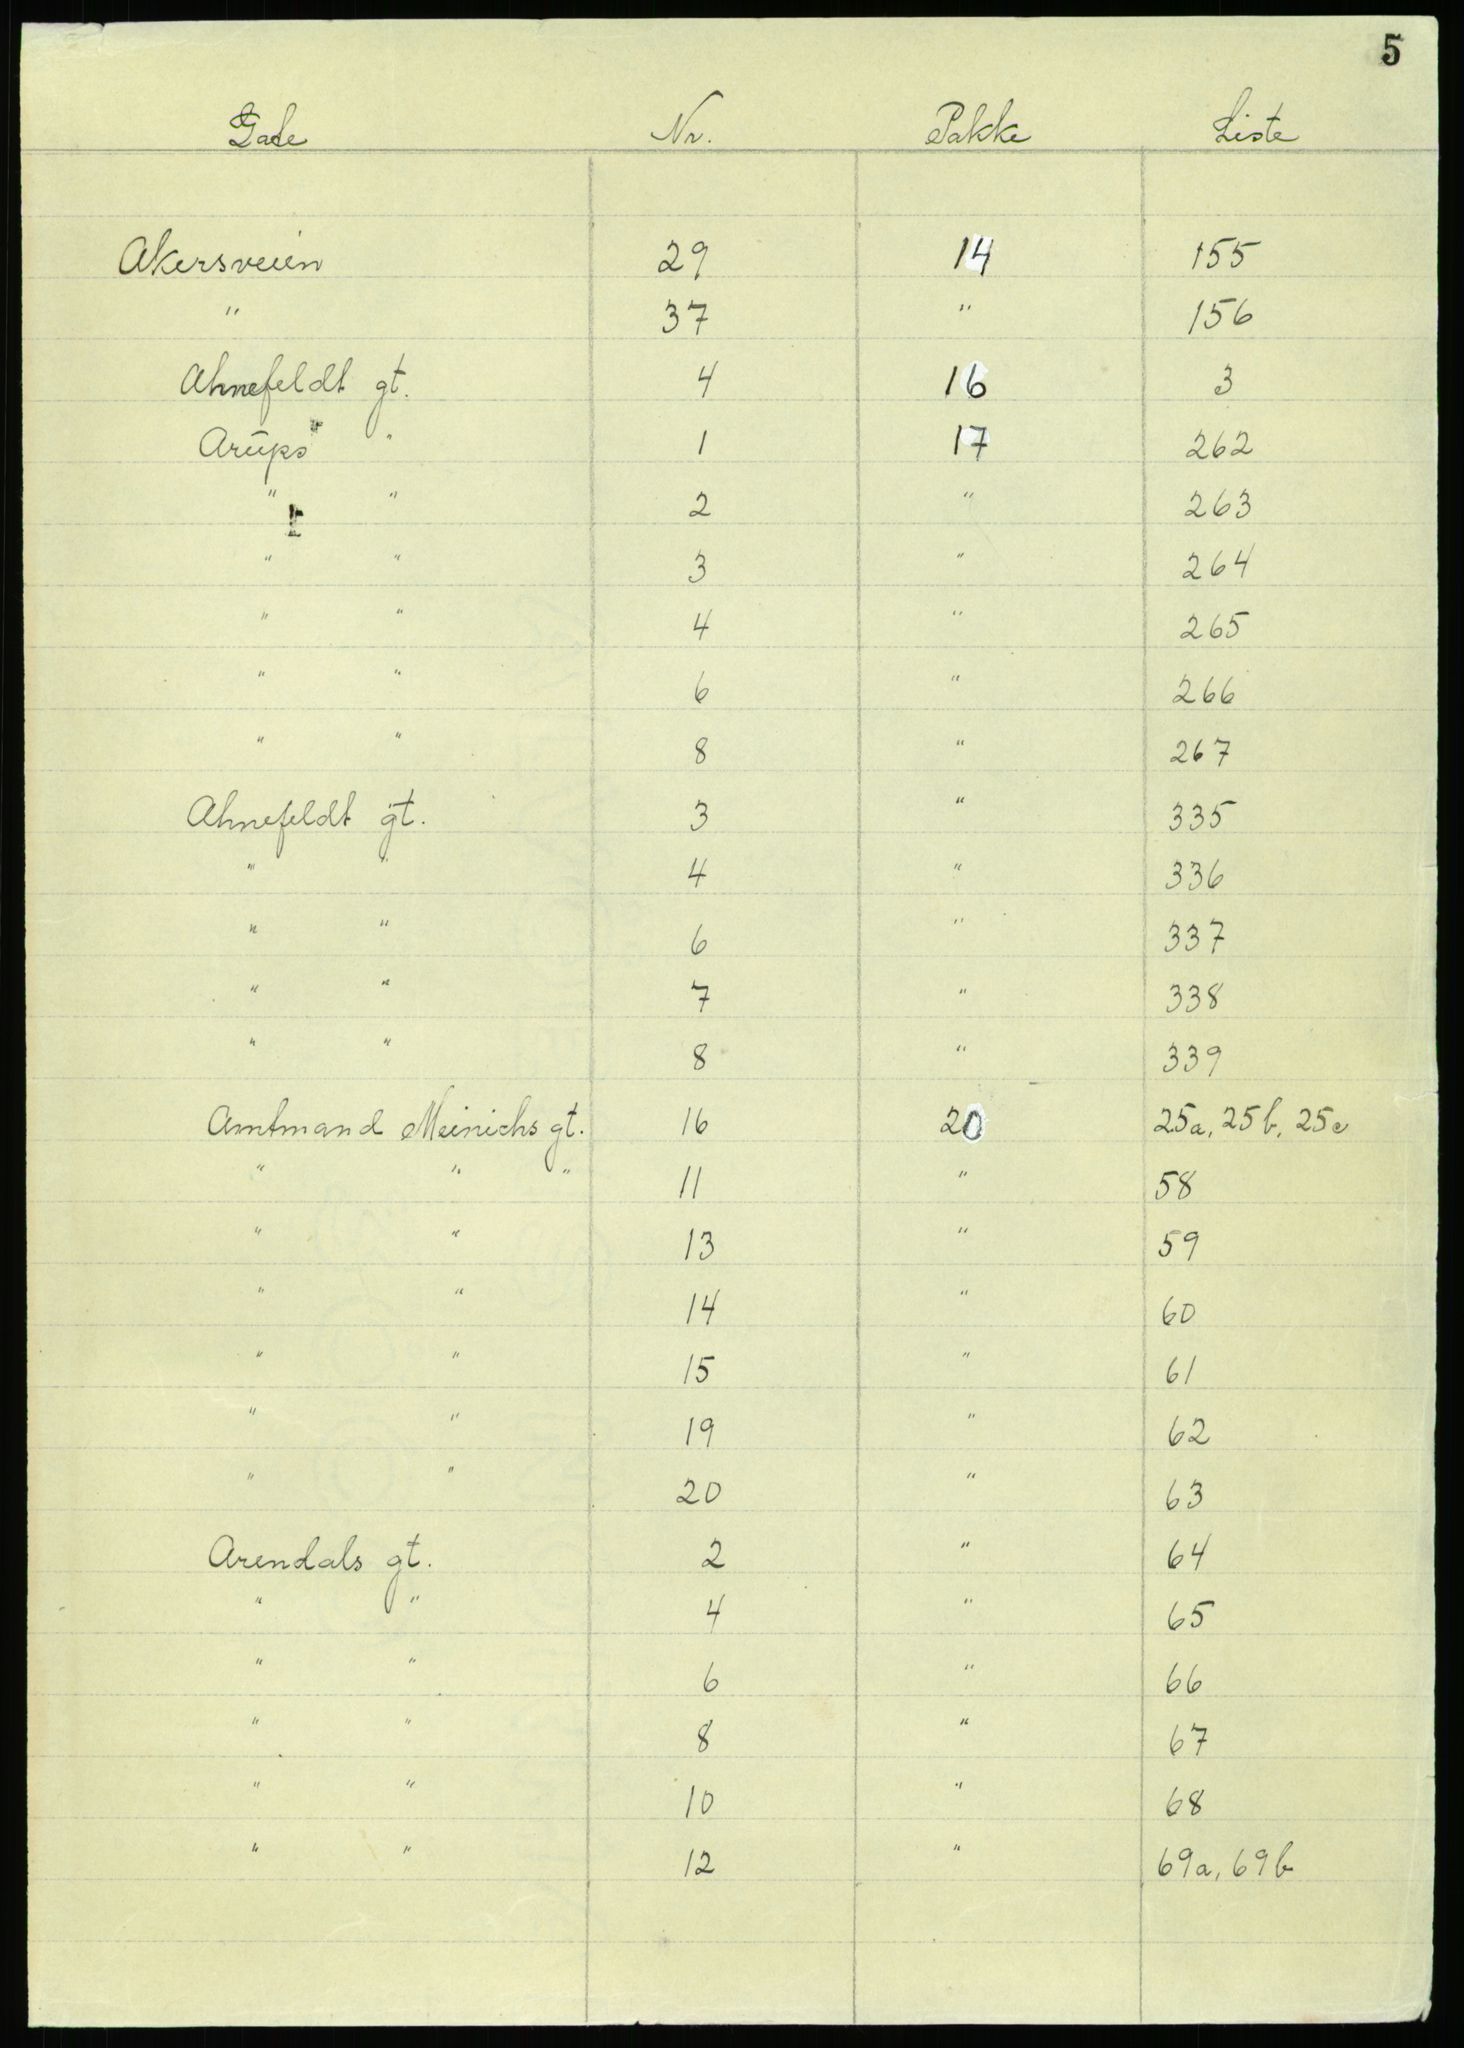 5
Gate Nr. Pakke Liste
Akersveien 29 14 155
" 37 " 156
Ahnefeldt gt. 4 16 3
Arūps " 1 17 262
" " 2 " 263
" " 3 " 264
" " 4 " 265
" " 6 " 266
" " 8 " 267
Ahnefeldt gt. 3 " 335
" " 4 " 336
" " 6 " 337
" " 7 " 338
" " 8 " 339
Amtmand Meinichs gt. 16 20 25a, 25b, 25c
" " " 11 " 58
" " 13 " 59
" " 14 " 60
" " 15 " 61
" " 19 " 62
" " 20 " 63
Arendals gt. 2 " 64
" " 4 " 65
" " 6 " 66
" " 8 " 67
" " 10 " 68
" " 12 " 69a, 69b